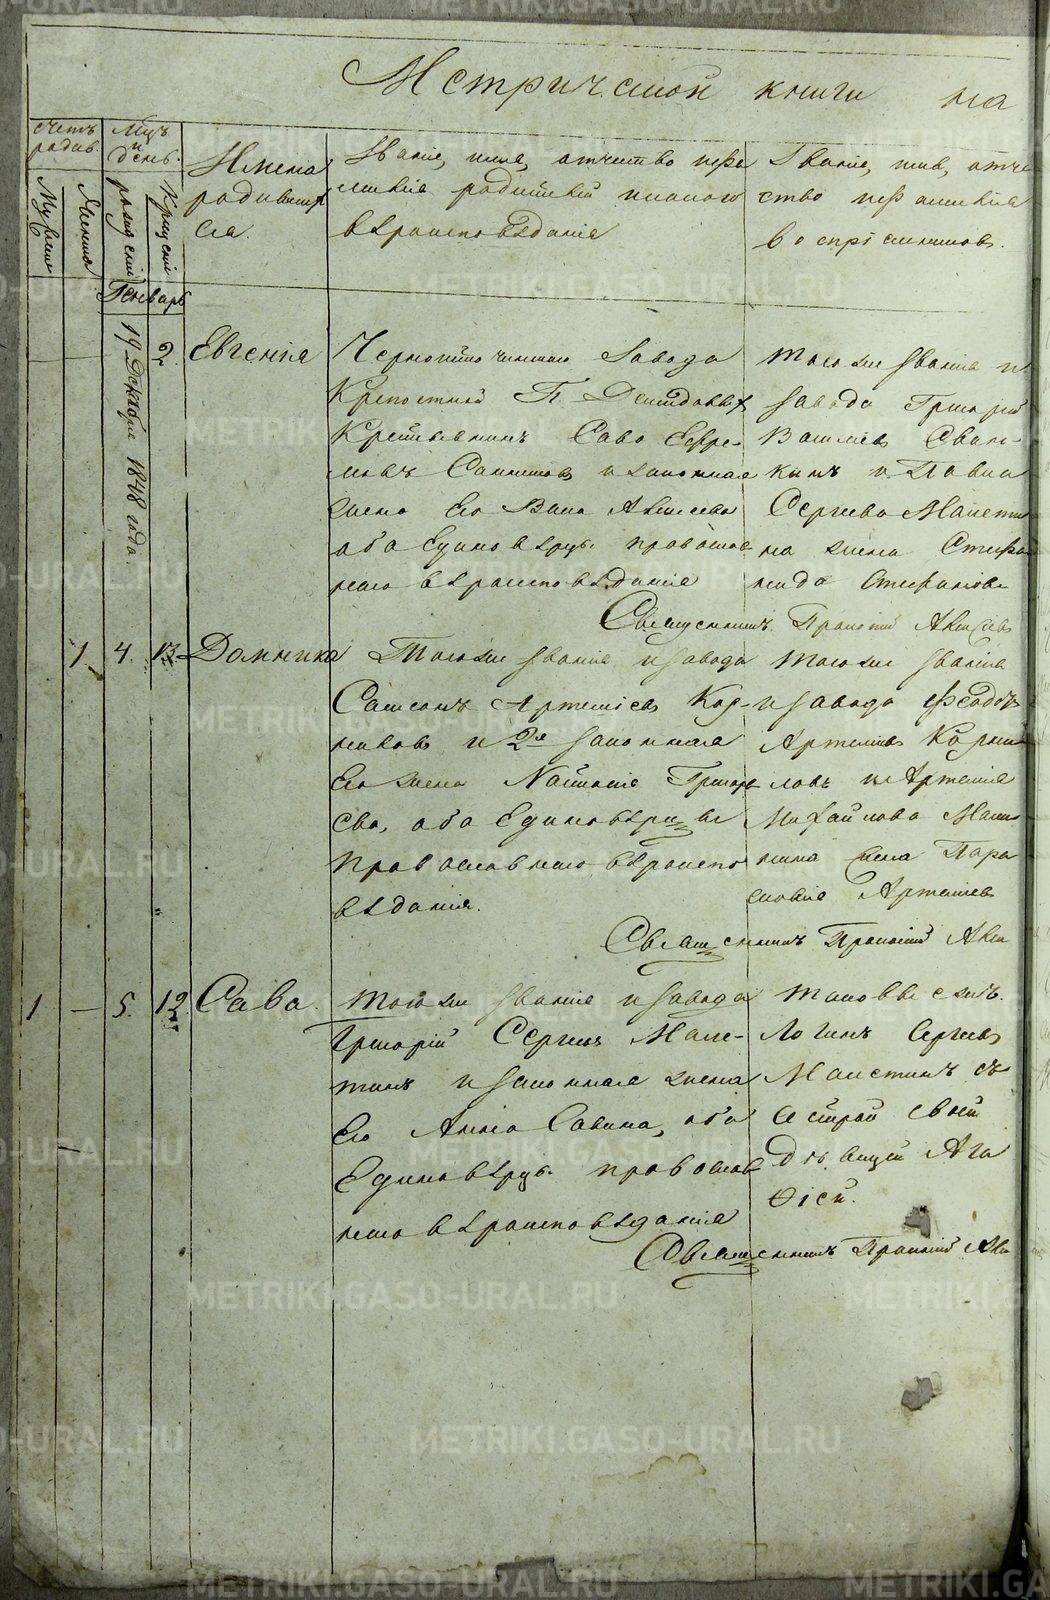 Метрической книги на
счетъ родив.
Мужеска
Женска
Мцъ и день.
рожденій
Крещеніе
Имена родившихся.
Званіе, имя, отчество и фамиліи родителей и какого вѣроисповѣданія
Званіе, имя, отчество и фамилія воспріемниковъ.
Генварь
19 Декабря 1848 года.
2
Евгенія
Черноисточинскаго Завода
Крѣпостной Г. Демидовых
Крестьянинъ Сава Ефре-
мовъ и законная
жена Его Алексеева
оба Единовѣрц. православ
наго вѣроисповѣданія
того же званія и
завода Григорій
Васильевъ
и
Сергѣева
на жена Стефа
нида Стефанова
Священникъ Прокопій Алексѣевъ
1
4.
13
Домника
Того же званія и завода
Самсонъ Артеміевъ Кор-
ниловъ и 2я законная
Его жена Наталія Григорь
ева, оба Единовѣрцы
православнаго вѣроиспо
вѣданія.
того же званія
и завода Феодоръ
Артеміевъ Корни
ловъ и Артемія
Михайлова
жена Пара
сковія Артеміева
Священникъ Прокопій Алек
1
—
5.
12.
Сава.
того же званія и завода
Григорій Сергѣевъ Мале-
тинъ и законная жена
Его Анна Савина, оба
Единовѣрц. православ
наго вѣроисповѣданія
Логинъ Сергѣевъ
съ
сестрой своей
дѣвицей Ага
ѳіей.
Священникъ Прокопій Але
METRIKI.GASO-URAL.RU